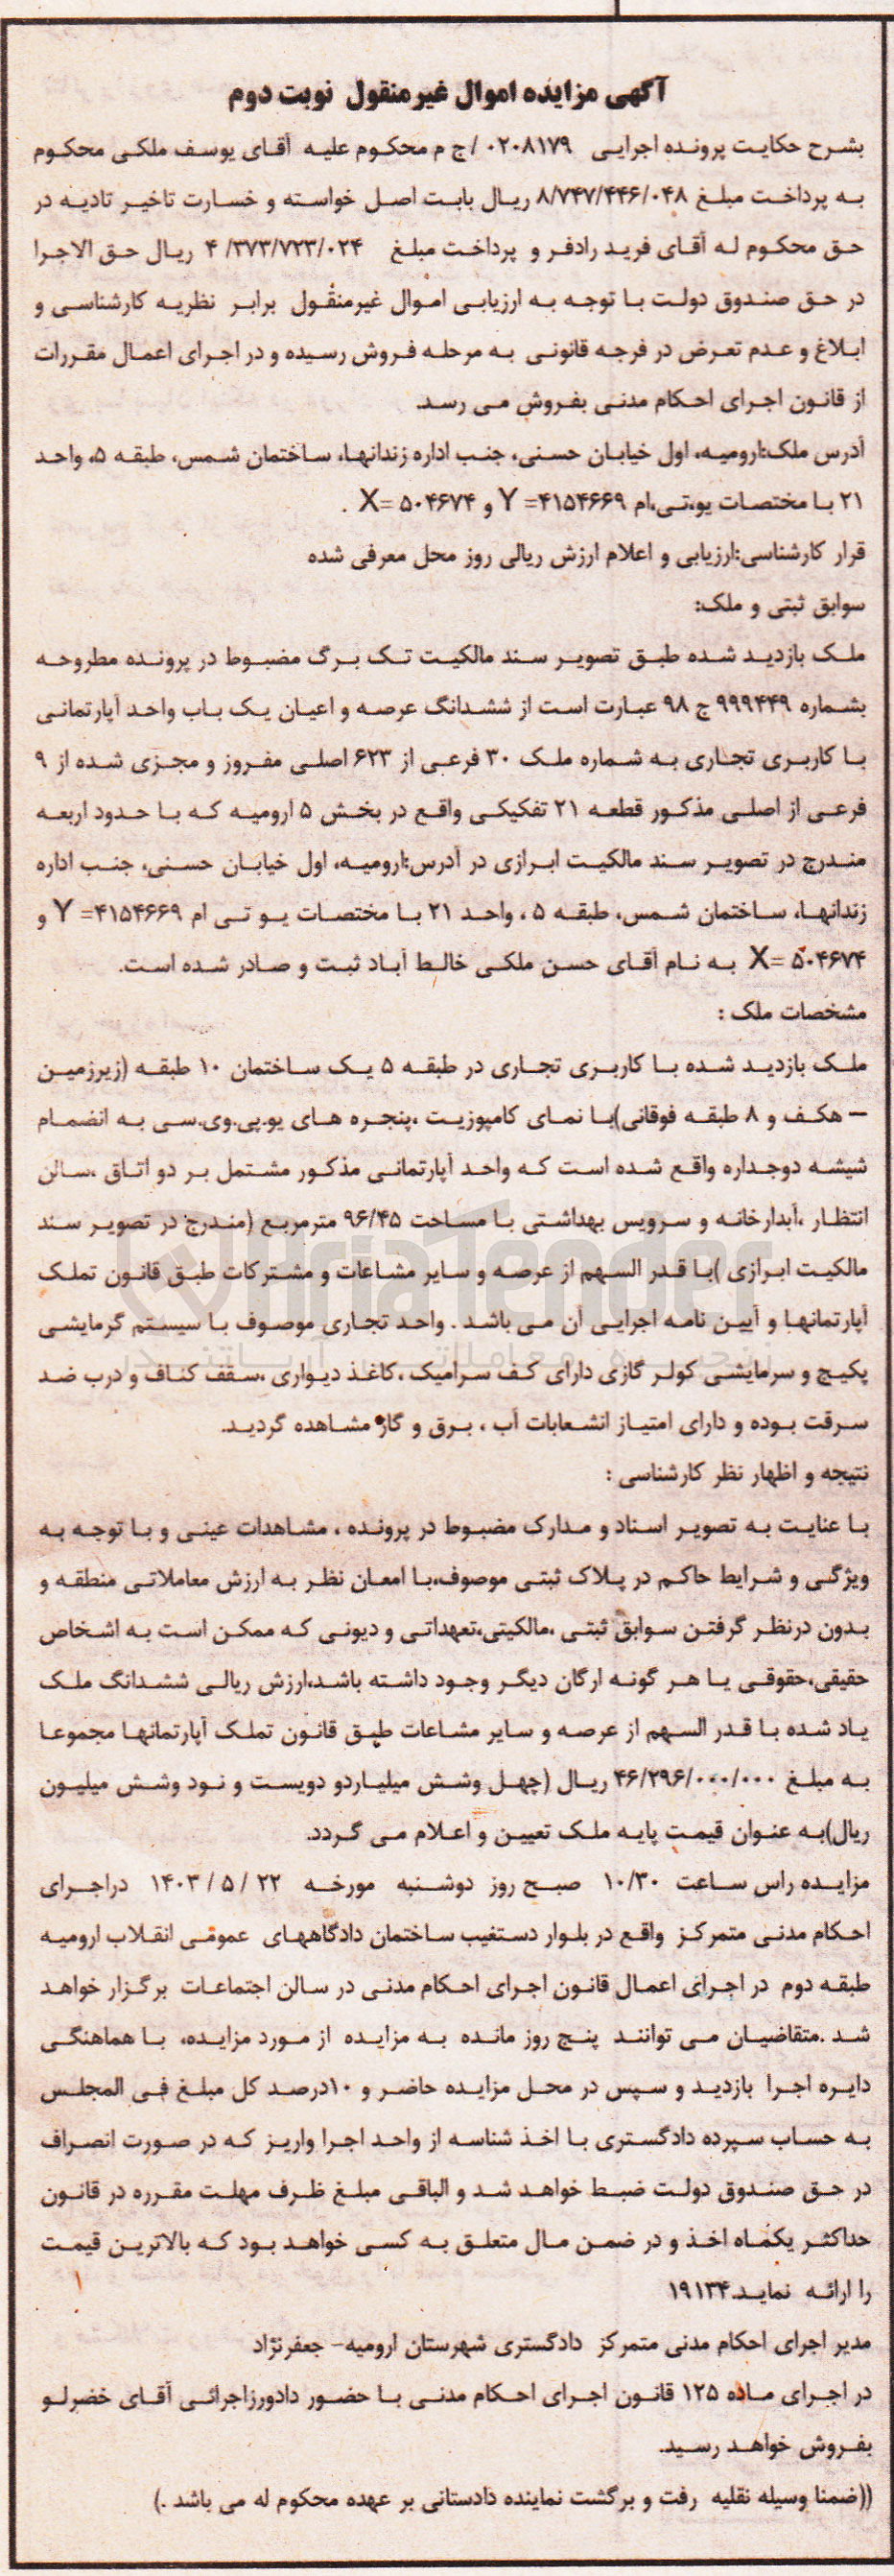 آگهی مزایده اموال غیرمنقول نوبت دوم
بشرح حکایت پرونده اجرایی ۰۲۰۸۱۷۹ /ج م محکوم علیه آقای یوسف ملکی محکوم
به پرداخت مبلغ ۸/۷۴۷/۴۴۶/۰۴۸ ریال بابت اصل خواسته و خسارت تاخیر تادیه در
حق محکوم له آقای فرید رادفر و پرداخت مبلغ ۴ /۳۷۳/۷۲۳/۰۲۴ ریال حق الاجرا
در حق صندوق دولت با توجه به ارزیابی اموال غیرمنقول برابر نظریه کارشناسی و
ابلاغ و عدم تعرض در فرجه قانونی به مرحله فروش رسیده و در اجرای اعمال مقررات
از قانون اجرای احکام مدنی بفروش می رسد.
آدرس ملک:ارومیه، اول خیابان حسنی، جنب اداره زندانها، ساختمان شمس، طبقه ۵، واحد
۲۱ با مختصات یو،تی،ام Y =۴۱۵۴۶۶۹ و X= ۵۰۴۶۷۴ .
قرار کارشناسی:ارزیابی و اعلام ارزش ریالی روز محل معرفی شده
سوابق ثبتی و ملک:
ملک بازدید شده طبق تصویر سند مالکیت تک برگ مضبوط در پرونده مطروحه
بشماره ۹۹۹۴۴۹ ج ۹۸ عبارت است از ششدانگ عرصه و اعیان یک باب واحد آپارتمانی
با کاربری تجاری به شماره ملک ۳۰ فرعی از ۶۲۳ اصلی مفروز و مجزی شده از ۹
فرعی از اصلی مذکور قطعه ۲۱ تفکیکی واقع در بخش ۵ ارومیه که با حدود اربعه
مندرج در تصویر سند مالکیت ابرازی در آدرس:ارومیه، اول خیابان حسنی، جنب اداره
زندانها، ساختمان شمس، طبقه ۵ ، واحد ۲۱ با مختصات یو تی ام Y =۴۱۵۴۶۶۹ و
X= ۵۰۴۶۷۴ به نام آقای حسن ملکی خالط آباد ثبت و صادر شده است.
مشخصات ملک :
ملک بازدید شده با کاربری تجاری در طبقه ۵ یک ساختمان ۱۰ طبقه (زیرزمین
– هکف و ۸ طبقه فوقانی)با نمای کامپوزیت ،پنجره های یو.پی.وی.سی به انضمام
شیشه دوجداره واقع شده است که واحد آپارتمانی مذکور مشتمل بر دو اتاق ،سالن
انتظار ،آبدارخانه و سرویس بهداشتی با مساحت ۹۶/۴۵ مترمربع (مندرج در تصویر سند
مالکیت ابرازی )با قدر السهم از عرصه و سایر مشاعات و مشترکات طبق قانون تملک
آپارتمانها و آیین نامه اجرایی آن می باشد . واحد تجاری موصوف با سیستم گرمایشی
پکیج و سرمایشی کولر گازی دارای کف سرامیک ،کاغذ دیواری ،سقف کناف و درب ضد
سرقت بوده و دارای امتیاز انشعابات آب ، برق و گاز مشاهده گردید.
نتیجه و اظهار نظر کارشناسی :
با عنایت به تصویر اسناد و مدارک مضبوط در پرونده ، مشاهدات عینی و با توجه به
ویژگی و شرایط حاکم در پلاک ثبتی موصوف،با امعان نظر به ارزش معاملاتی منطقه و
بدون درنظر گرفتن سوابق ثبتی ،مالکیتی،تعهداتی و دیونی که ممکن است به اشخاص
حقیقی،حقوقی یا هر گونه ارگان دیگر وجود داشته باشد،ارزش ریالی ششدانگ ملک
یاد شده با قدر السهم از عرصه و سایر مشاعات طبق قانون تملک آپارتمانها مجموعا
به مبلغ ۴۶/۲۹۶/۰۰۰/۰۰۰ ریال (چهل وشش میلیاردو دویست و نود وشش میلیون
ریال)به عنوان قیمت پایه ملک تعیین و اعلام می گردد.
مزایده راس ساعت ۱۰/۳۰ صبح روز دوشنبه مورخه ۲۲ / ۵ / ۱۴۰۳ دراجرای
احکام مدنی متمرکز واقع در بلوار دستغیب ساختمان دادگاههای عمومی انقلاب ارومیه
طبقه دوم در اجرای اعمال قانون اجرای احکام مدنی در سالن اجتماعات برگزار خواهد
شد .متقاضیان می توانند پنج روز مانده به مزایده از مورد مزایده، با هماهنگی
دایره اجرا بازدید و سپس در محل مزایده حاضر و ۱۰درصد کل مبلغ فی المجلس
به حساب سپرده دادگستری با اخذ شناسه از واحد اجرا واریز که در صورت انصراف
در حق صندوق دولت ضبط خواهد شد و الباقی مبلغ ظرف مهلت مقرره در قانون
حداکثر یکماه اخذ و در ضمن مال متعلق به کسی خواهد بود که بالاترین قیمت
را ارائه نماید.۱۹۱۳۴
مدیر اجرای احکام مدنی متمرکز دادگستری شهرستان ارومیه- جعفرنژاد
در اجرای ماده ۱۲۵ قانون اجرای احکام مدنی با حضور دادورزاجرائی آقای خضرلو
بفروش خواهد رسید.
((ضمنا وسیله نقلیه رفت و برگشت نماینده دادستانی بر عهده محکوم له می باشد .)
AriaTender